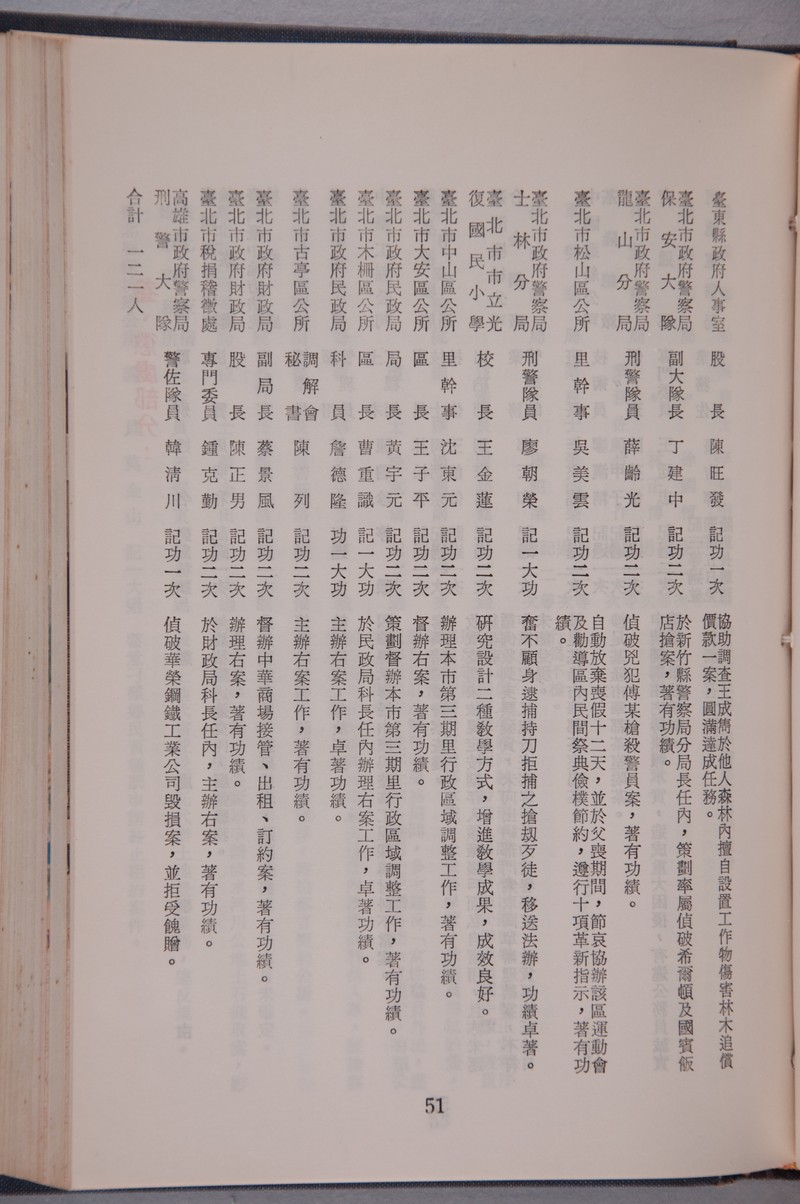 臺東縣政府人事室 股長 陳旺發 記功一次 協助調查王成雋於他人森林內擅自設置工作物傷害林木追償
價款一案，圓滿達成任務。
臺北市政府警察局
保安大隊 副大隊長 丁建中 記功二次 於新竹縣警察局分局長任內，策劃率屬偵破希爾頓及國賓飯
店搶案，著有功績。
臺北市政府警察局
龍山分局 刑警隊員 薛齡光 記功二次 偵破兇犯傅某槍殺警員案，著有功績。
臺北市松山區公所 里幹事 吳美雲 記功二次 自動放棄喪假十二天，並於父喪期間，節哀協辦該區運動會
及勸導區內民間祭典儉樸節約，遵行十項革新指示，著有功
績。
臺北市政府警察局
士林分局 刑警隊員 廖朝榮 記一大功 奮不顧身逮捕持刀拒捕之搶刼歹徒，移送法辦，功績卓著。
臺北市市立光
復國民小學 校長 王金蓮 記功二次 研究設計二種教學方式，增進教學成果，成效良好。
臺北市中山區公所 里幹事 沈東元 記功二次 辦理本市第三期里行政區域調整工作，著有功績。
臺北市大安區公所 區長 王子平 記功二次 督辦右案，著有功績。
臺北市政府民政局 局長 黃宇元 記功二次 策劃督辦本市第三期里行政區域調整工作，著有功績。
臺北市木柵區公所 區長 曹重識 記一大功 於民政局科長任內辦理右案工作，卓著功績。
臺北市政府民政局 科員 詹德隆 功一大功 主辦右案工作，卓著功績。
臺北市古亭區公所 調解會
秘書 陳列 記功二次 主辦右案工作，著有功績。
臺北市政府財政局 副局長 蔡景風 記功二次 督辦中華商場接管、出租、訂約案，著有功績。
臺北市政府財政局 股長 陳正男 記功二次 辦理右案，著有功績。
臺北市稅捐稽徵處 專門委員 鍾克勤 記功二次 於財政局科長任內，主辦右案，著有功績。
高雄市政府警察局
刑警大隊 警佐隊員 韓清川 記功一次 偵破華榮鋼鐵工業公司毀損案，並拒受餽贈。
合計 一二一人
51